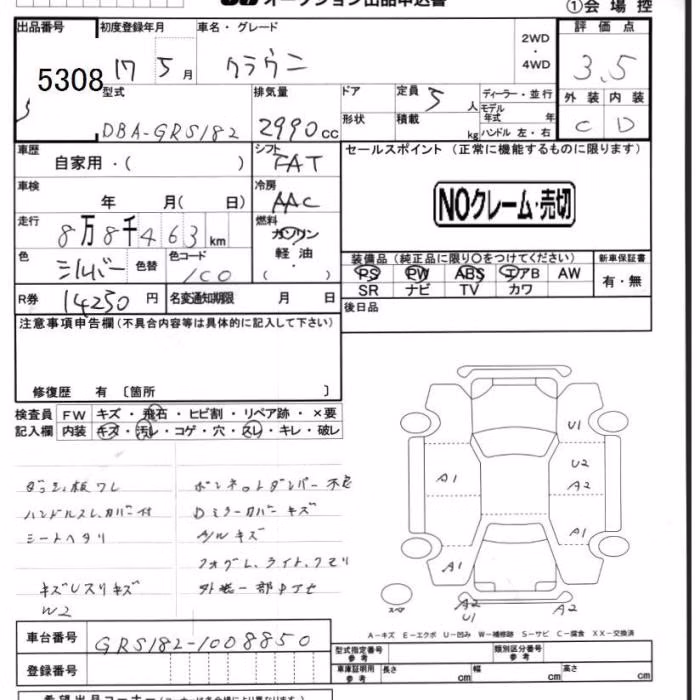 オークション出品申込書
①会場控
出品番号 初度登録年月 車名・グレード 評価点
5308 17 5月 クラウン 2WD・4WD 3.5
型式 排気量 ドア 定員 5人 ディーラー・並行 外装 内装
DBA-GRS182 2990cc 形状 積載 kg モデル年式 年式 ハンドル 左・右 C D
車歴 シフト セールスポイント (正常に機能するものに限ります)
自家用・( ) FAT
車検 冷房 NOクレーム・売切
年 月( 日) AAC
走行 燃料
8万8千463km ガソリン
色 シルバー 色替 色コード 1C0 軽油・( )
装備品 (純正品に限り○をつけてください) 新車保証書
PS PW ABS エアB AW 有・無
SR ナビ TV カワ
R券 14250円 名変通知期限 月 日 後日品
注意事項申告欄(不具合内容等は具体的に記入して下さい)
修復歴 有 〔箇所 〕
検査員 FW キズ・飛石・ヒビ割・リペア跡・×要
記入欄 内装 キズ・汚レ・コゲ・穴・スレ・キレ・破レ
ワレ
ボンネットダンパー不良
ハンドルスレ、カバー付
Dミラーカバーキズ
シートヘタリ
A/Wキズ
フォグL、ライト、クモリ
キズUスリキズ
W2
U1
U2
A2
A1
A1
A1
A1
スペア
A2
U1
A2
A-キズ E-エクボ U-凹み W-補修跡 S-サビ C-腐食 XX-交換済
車台番号 GRS182-1008850
登録番号
型式指定番号 参考 類別区分番号 参考
車庫証明用 参考 長さ cm 幅 cm 高さ cm
希望出品コーナー